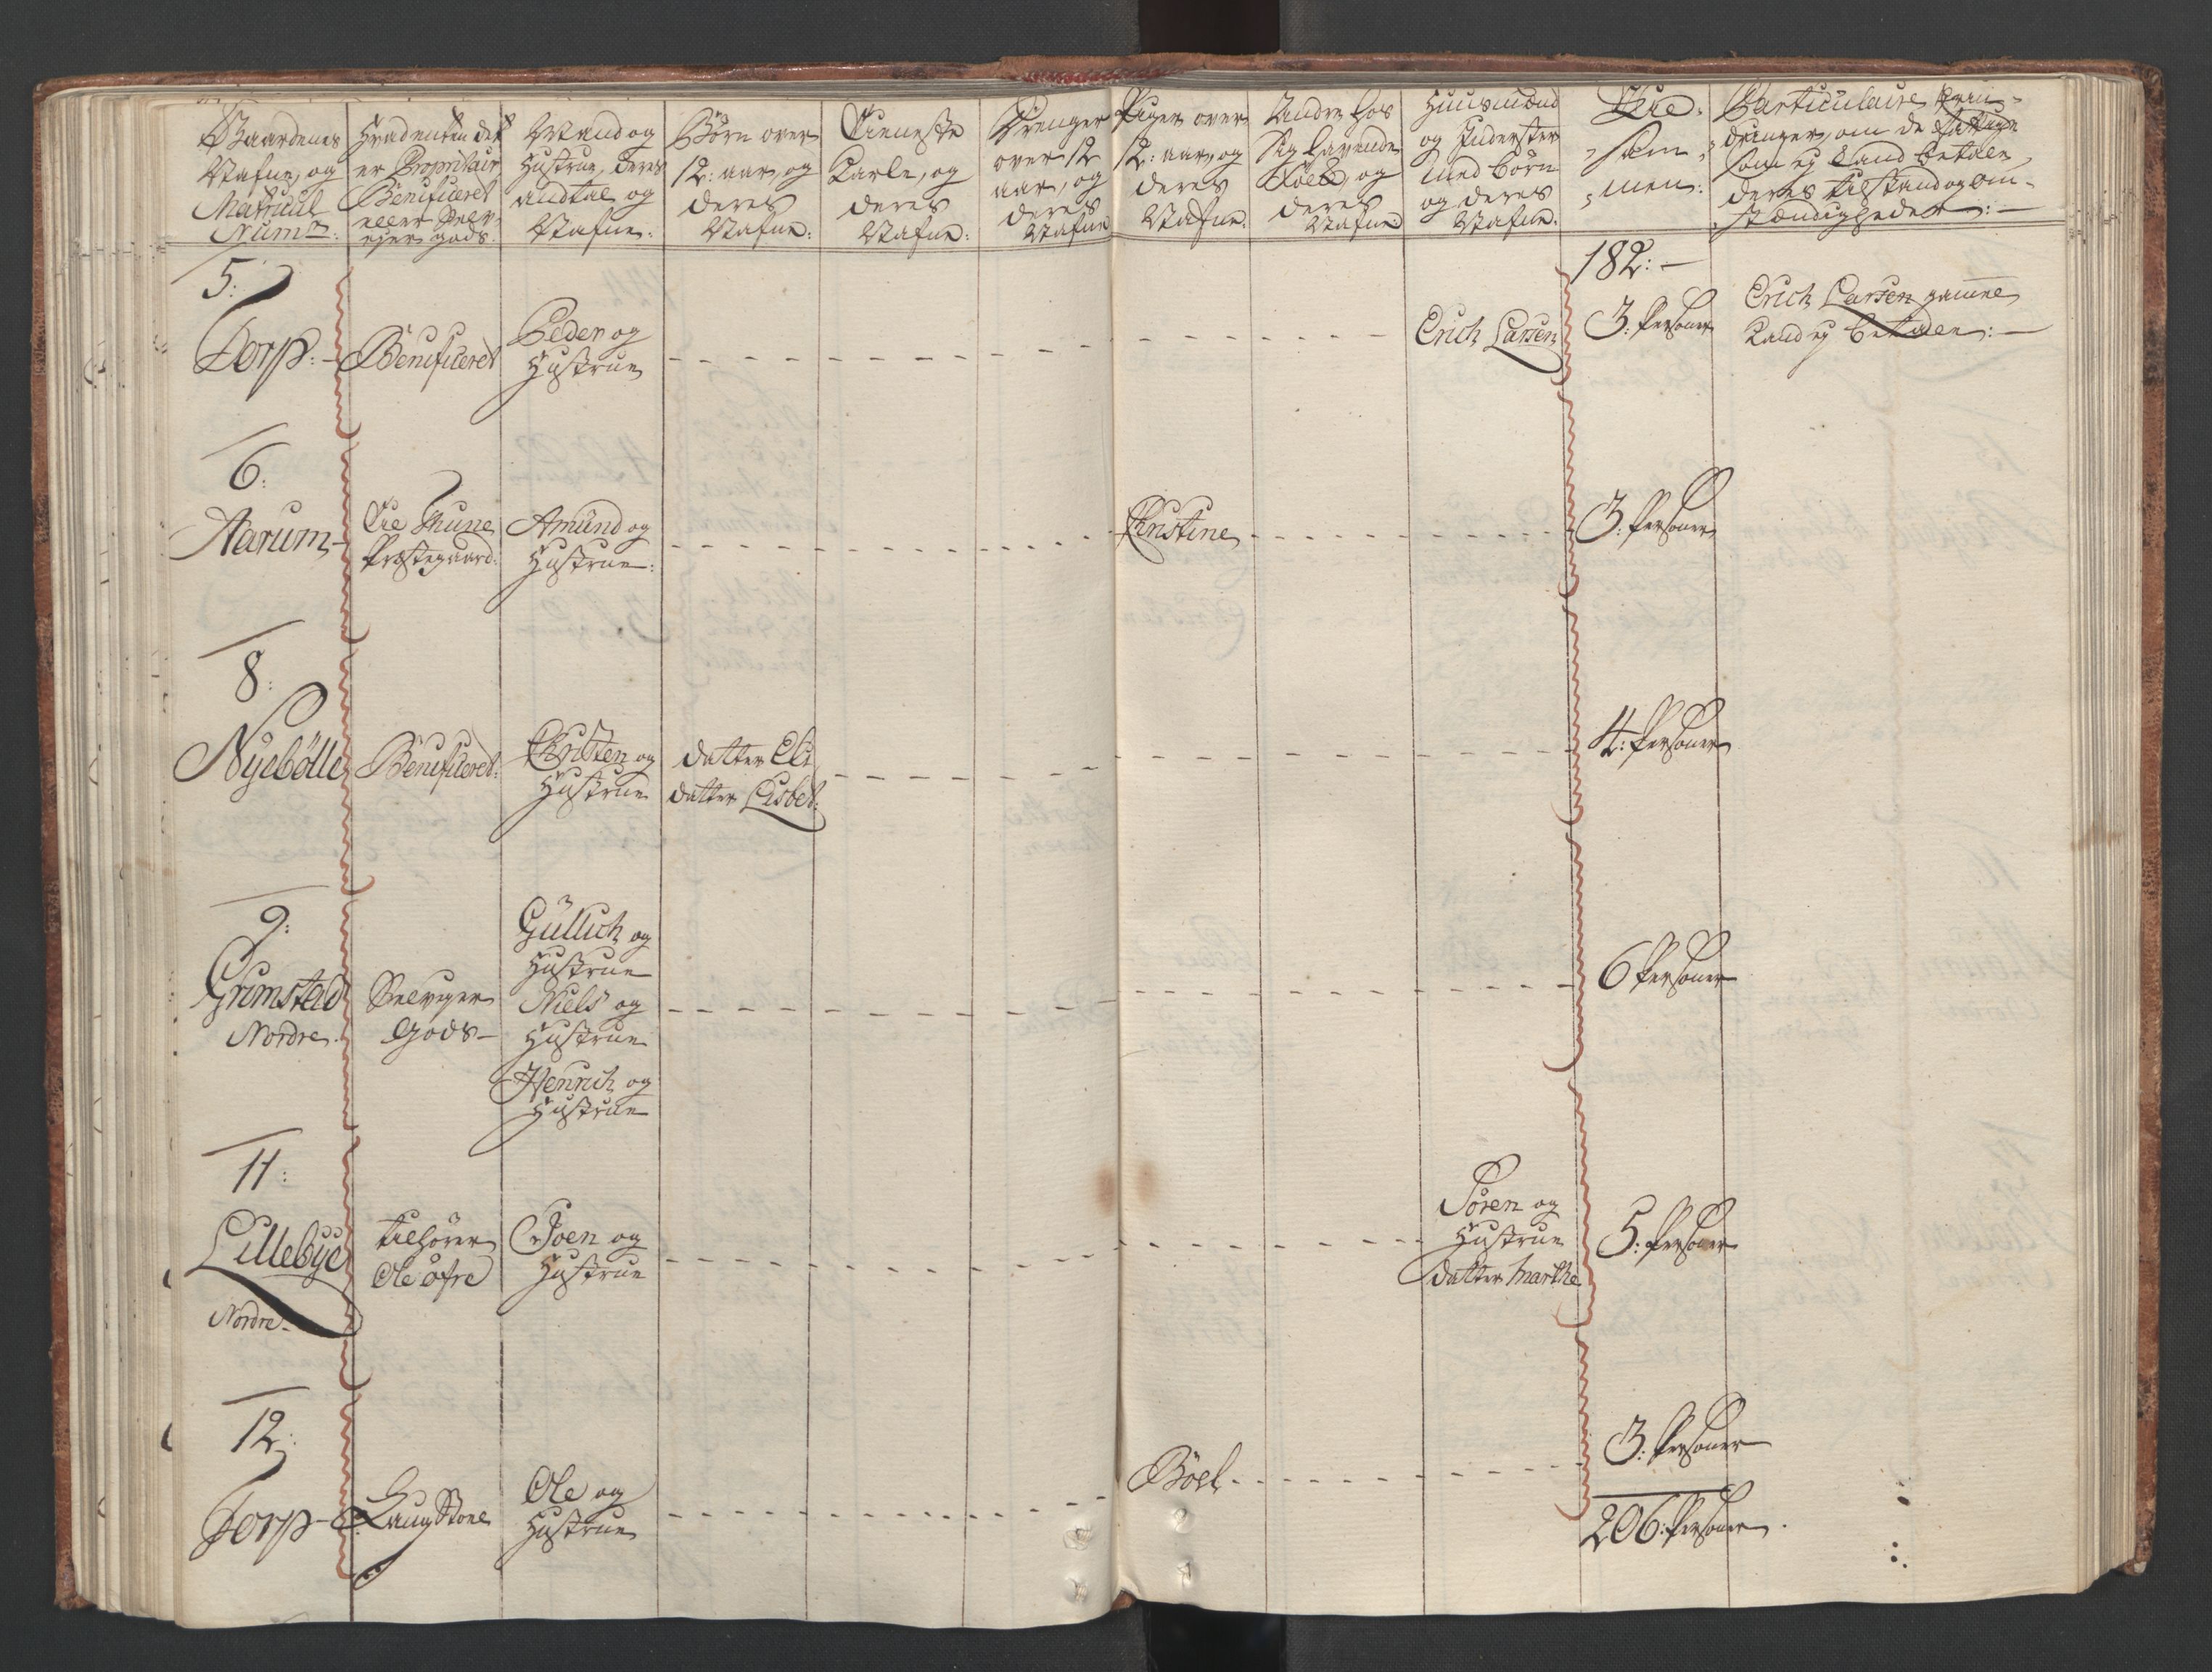 Gaardenes
Nafne, og
Matricul
Num:
Hvad enten det
er Propritair
Benificeret
eller Selv-
ejer gods.
Mand og
Hustrue, deres
andtal og
Nafne:
Börn over
12: aar, og
deres
Nafne:
Tieneste
Karle, og
deres
Nafne:
Drenger
over 12
aar, og
deres
Nafne
Piger over
12: aar, og
deres
Nafne:
Andre hos
sig havende
Folk, og
deres
Nafne
Huusmænd
og Inderster
med börn
og deres
Nafne.
Til-
sam
men:
Particulaire
om de fattige
som ej kand betale,
deres tilstand og om-
stændigheder:
182:
5:
Torp:
Benificeret
Peder og
Hustrue
Erich Larsen
3: Personer
Erich Larsen gamme
kand ej betale:
6:
Aarum
Til Thune
Præstegaard:
Amund og
Hustrue:
Christine
3: Personer
8:
Nyebölle
Benificeret:
Christen og
Hustrue
datter Eli
datter Lisbet:
4: Personer
9:
Grimstad
Nordre
Selvejer
Gods
Gullich og
Hustrue
Niels og
Hustrue
Henrich og
Hustrue
6 Personer
11:
Lillebye
Nordre
tilhörer
Ole öfre
Joen og
Hustrue
Sören og
Hustrue
datter Marthe
5: Personer
12:
Torp
Laug Stone
Ole og
Hustrue
Böel
3: Personer
206: Personer.